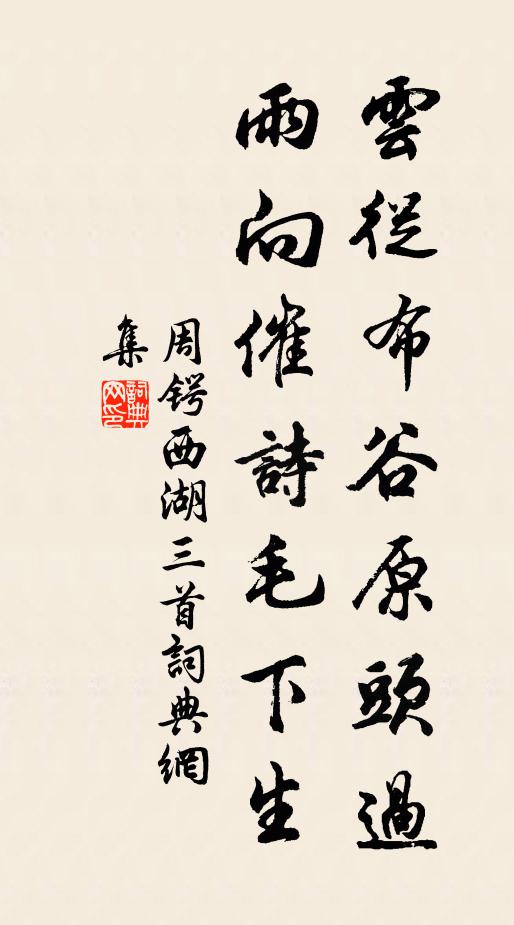 雲從布谷原頭過
雨向催詩毛下生
周锷西湖三首詞典網
集
詞典網印